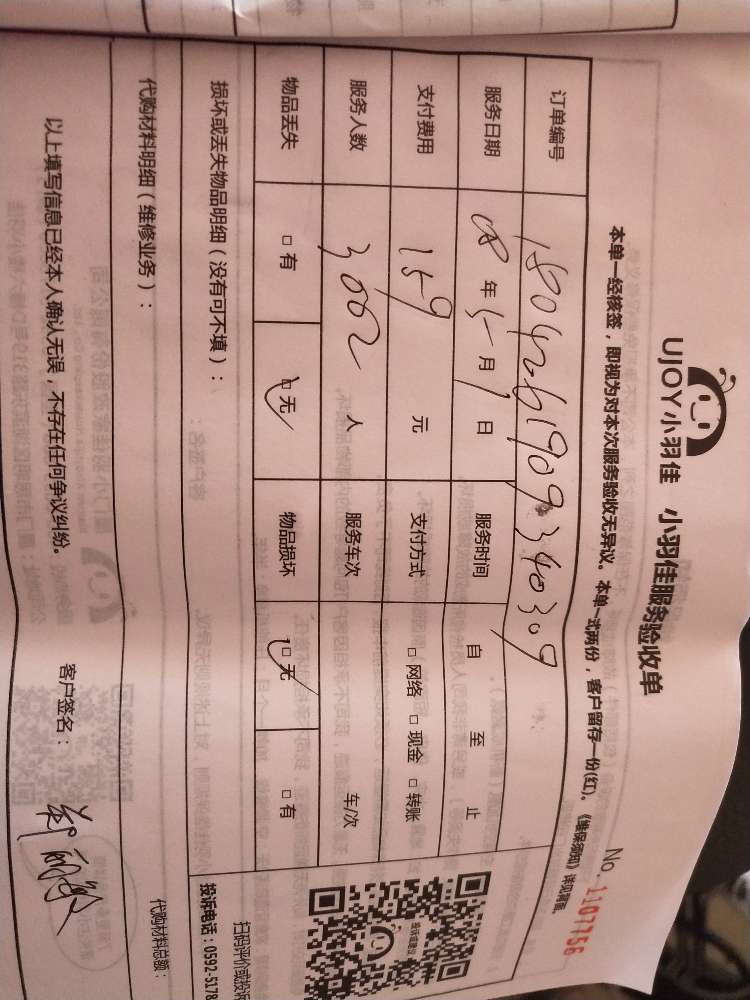 UJOY小羽佳 小羽佳服务验收单
No. 1107756
本单一经核签，即视为对本次服务验收无异议。本单一式两份，客户留存一份(红)。《维保须知》详见背面。
订单编号 1804261909340309
服务日期 08 年 5 月 1 日 服务时间 自 至 止
支付费用 159 元 支付方式 □ 网络 □ 现金 □ 转账
服务人数 人 服务车次 车/次
物品丢失 □ 有 □ 无 物品损坏 □ 无 □ 有
损坏或丢失物品明细（没有可不填）：
扫码评价或投诉
投诉电话：0592-5178
代购材料明细（维修业务）：
代购材料总额：
以上填写信息已经本人确认无误，不存在任何争议纠纷。 客户签名：